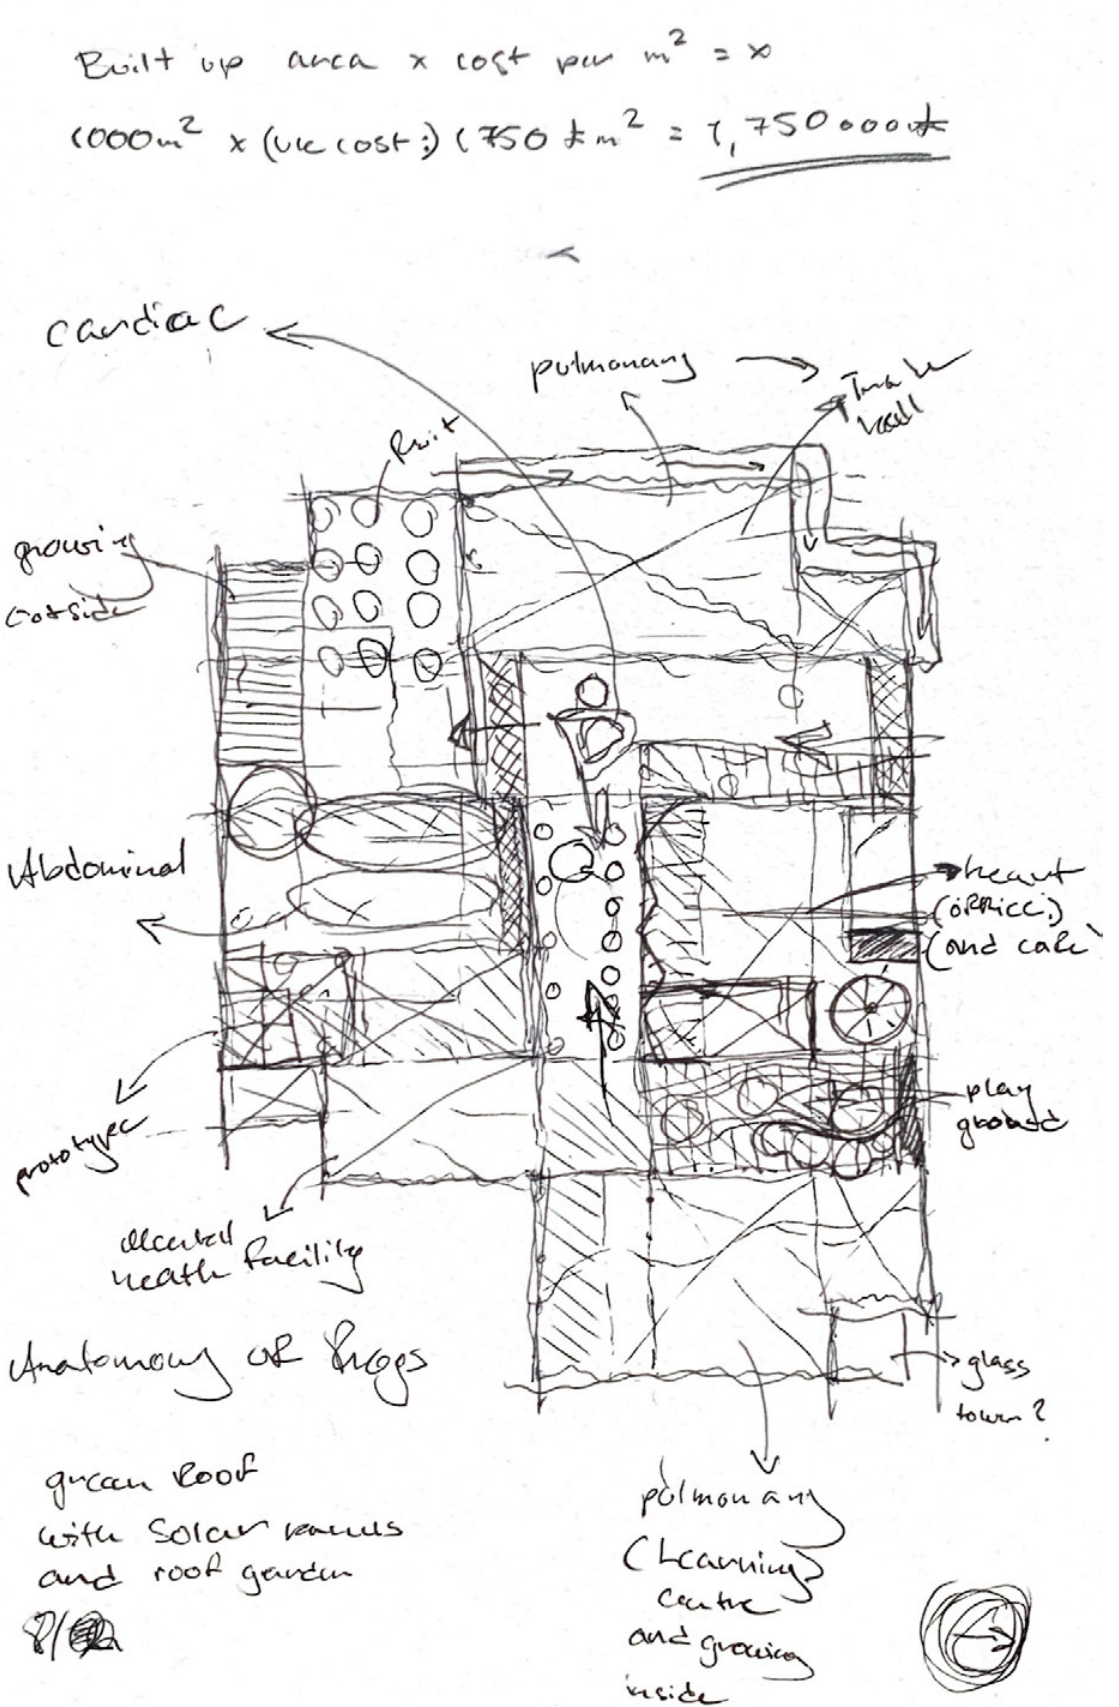 Built up area x cost per m² = x
1000m² x (UK cost:) 1750 £m² = 1,750000
cardiac
pulmonary
Fruit
growing
outside
Abdominal
heart
(office.)
(and cafe)
play
ground
prototypes
Mental
heath facility
Anatomony of Frogs
glass
tower?
green roof
with solar panels
and roof garden
pulmonary
(Learning)
centre
and growing
inside